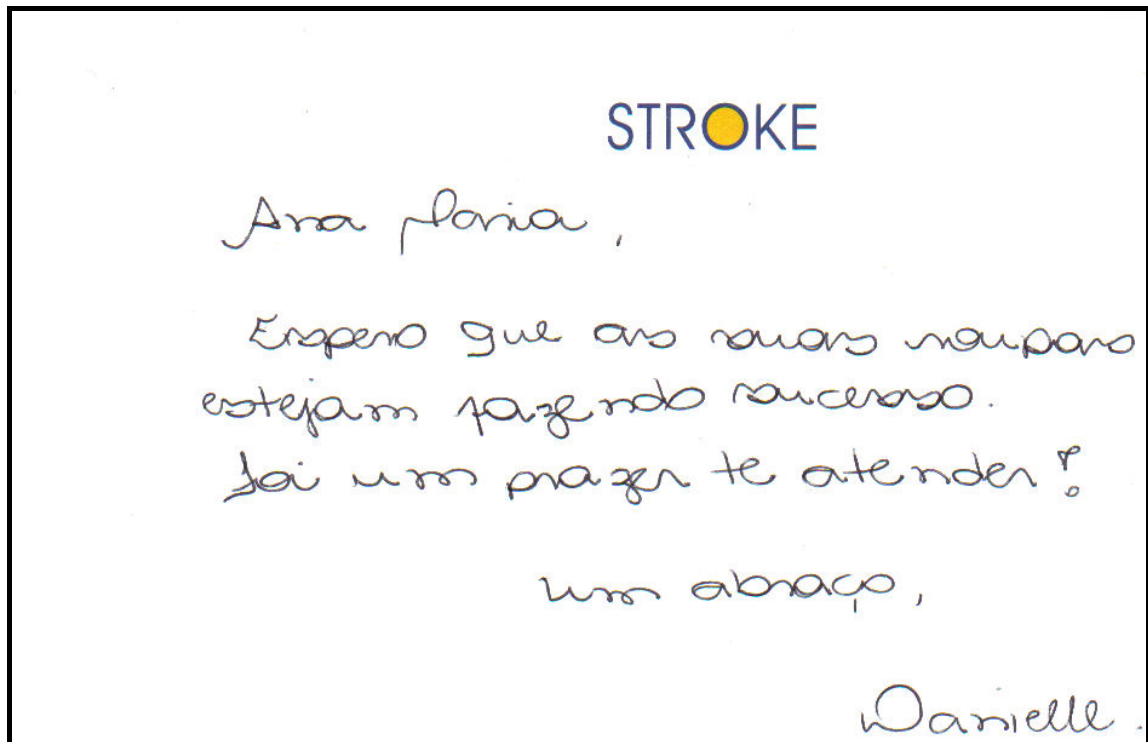 STROKE
Ana Maria,
Espero que as suas roupas
estejam fazendo sucesso.
Foi um prazer te atender!
Um abraço,
Danielle.